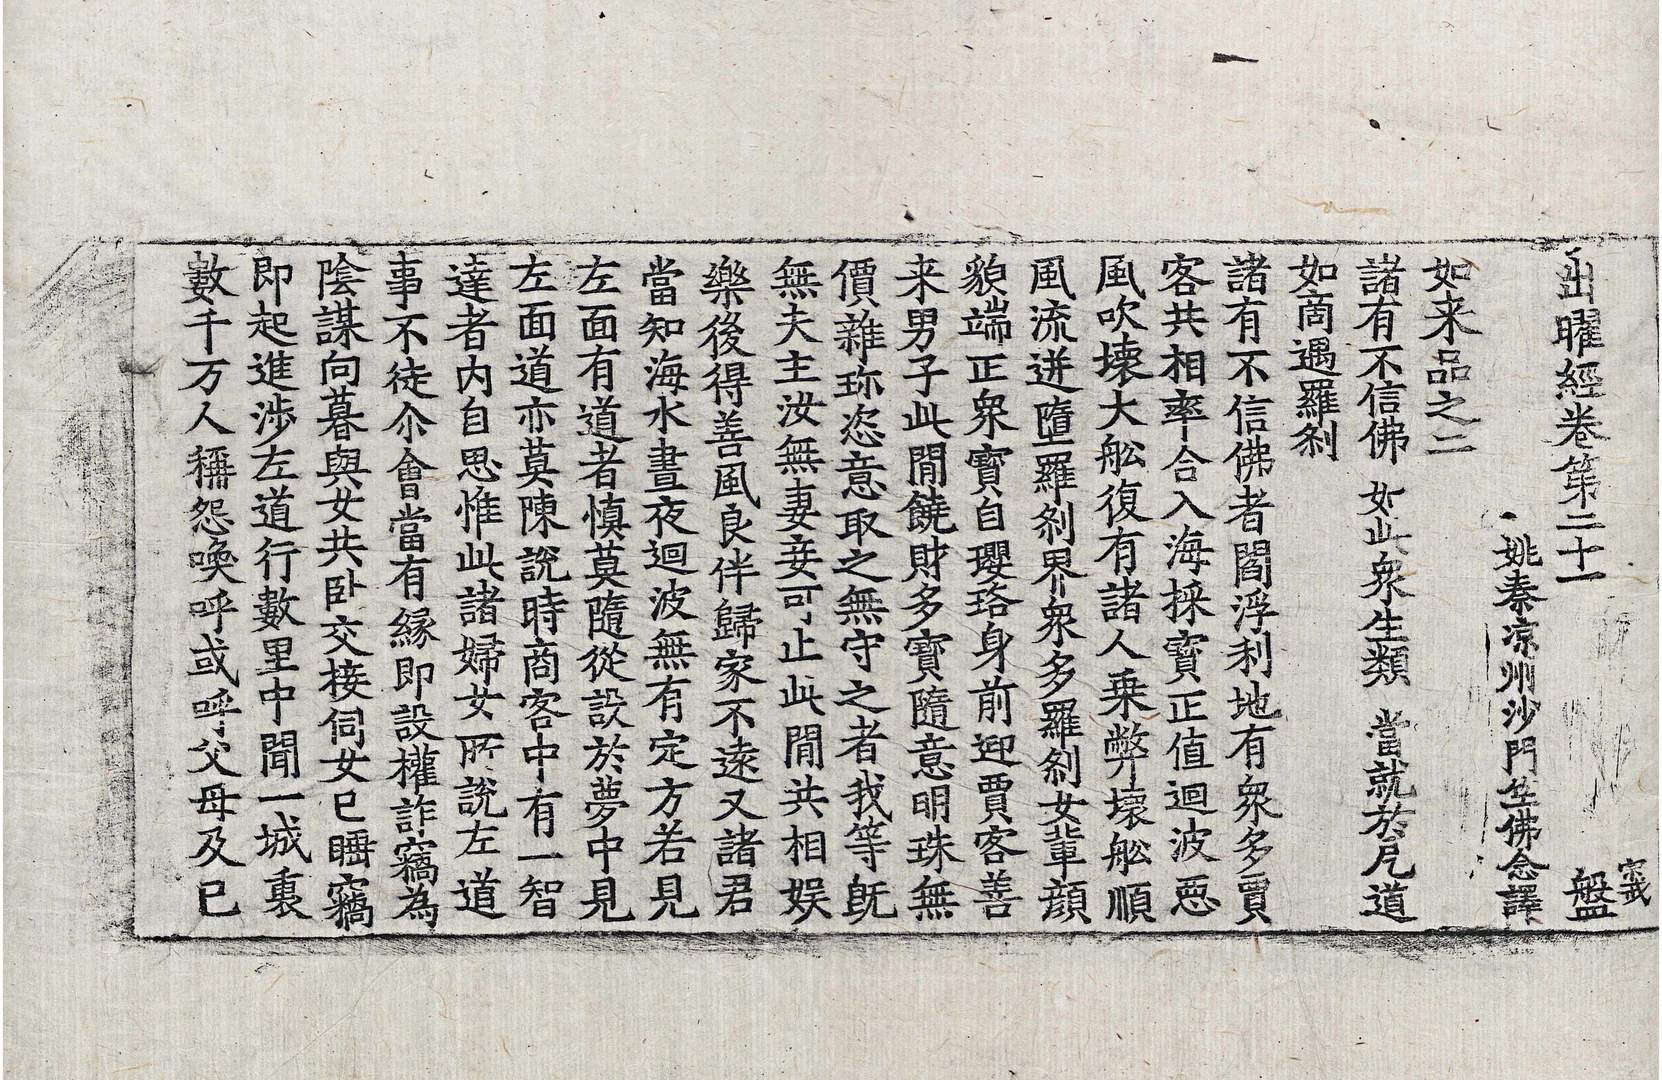 出曜經卷第二十一　盤
姚秦涼州沙門竺佛念譯
如来品之二
諸有不信佛　如此衆生類　當就於厄道
如啇遇羅剎
諸有不信佛者閻浮利地有衆多賈
客共相率合入海採寳正值迴波惡
風吹壞大舩復有諸人乗弊壞舩順
風流迸墮羅剎界衆多羅剎女輩顔
貌端正衆寳自瓔珞身前迎賈客善
来男子此閒饒財多寳隨意明珠無
價雜珎恣意取之無守之者我等旣
無夫主汝無妻妾可止此閒共相娱
樂後得善風良伴歸家不遠又諸君
當知海水晝夜迴波無有定方若見
左面有道者慎莫隨從設於夢中見
左面道亦莫陳說時商客中有一智
達者内自思惟此諸婦女所說左道
事不徒尒會當有緣即設權詐竊為
陰謀向暮與女共卧交接伺女已睡竊
即起進涉左道行數里中聞一城裏
數千万人稱怨喚呼或呼父母及已